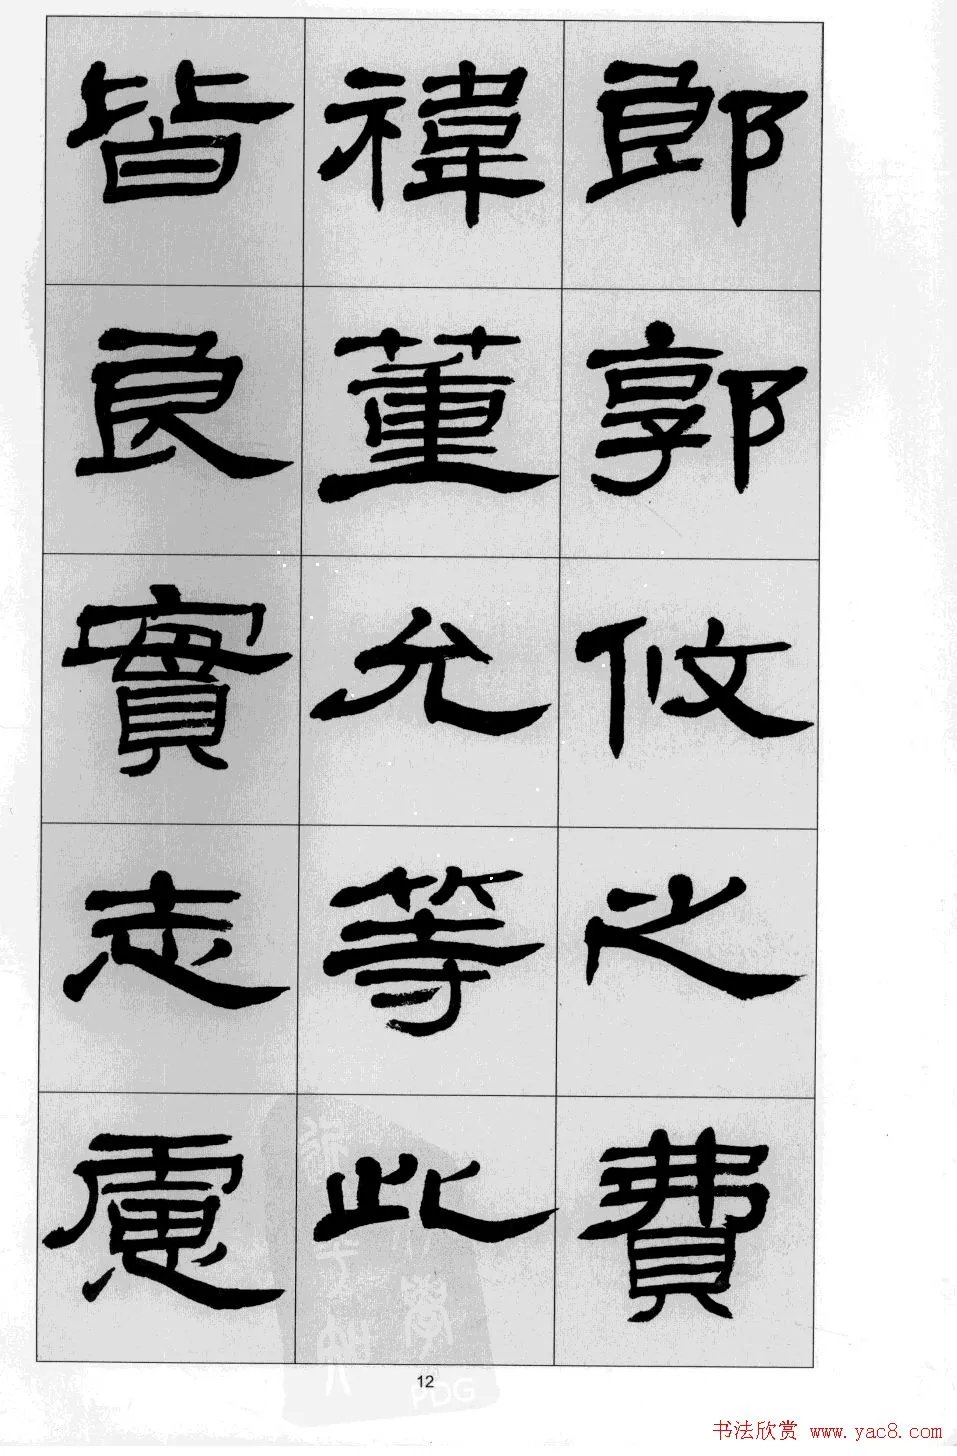 郎郭攸之費
禕董允等此
皆良實志慮
12
书法欣赏 www.yac8.com